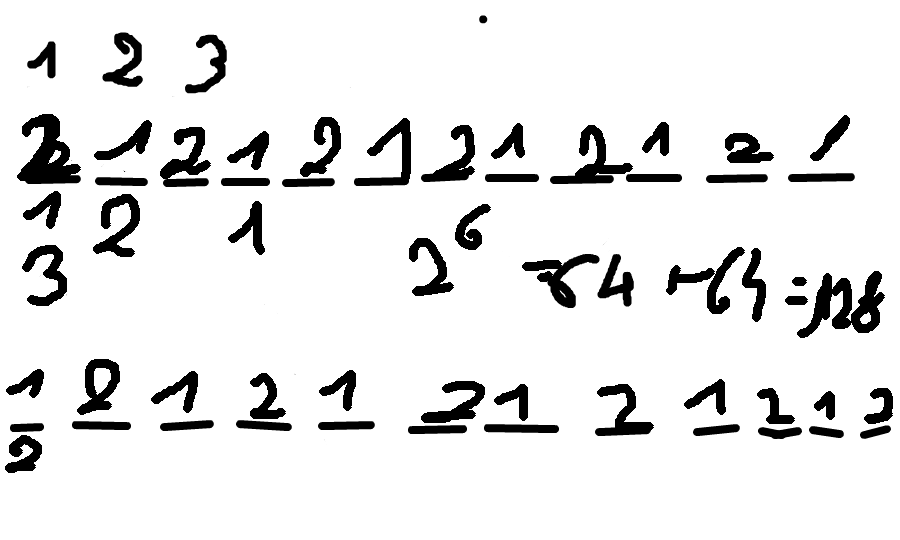 1 2 3
2 1 2 1 2 1 2 1 2 1 2 1
1 2 1
3 2^6 = 64 + 64 = 128
1 2 1 2 1 2 1 2 1 2 1 2
2